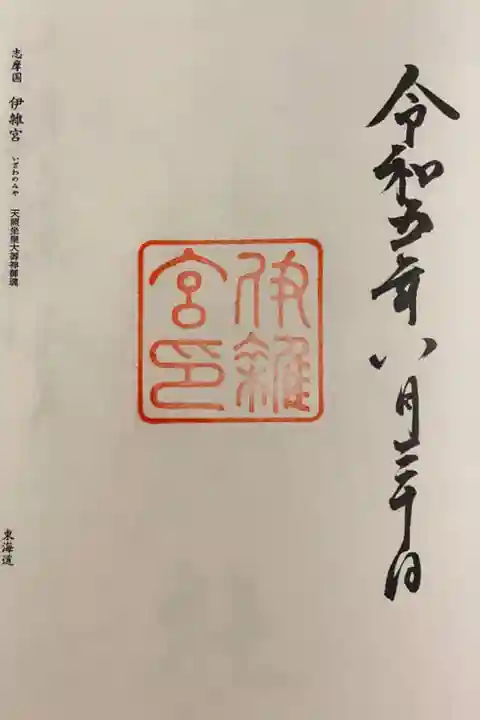 令和五年八月三十日
伊雑
宮印
志摩国 伊雜宮 いざわのみや 天照坐皇大御神御魂
東海道